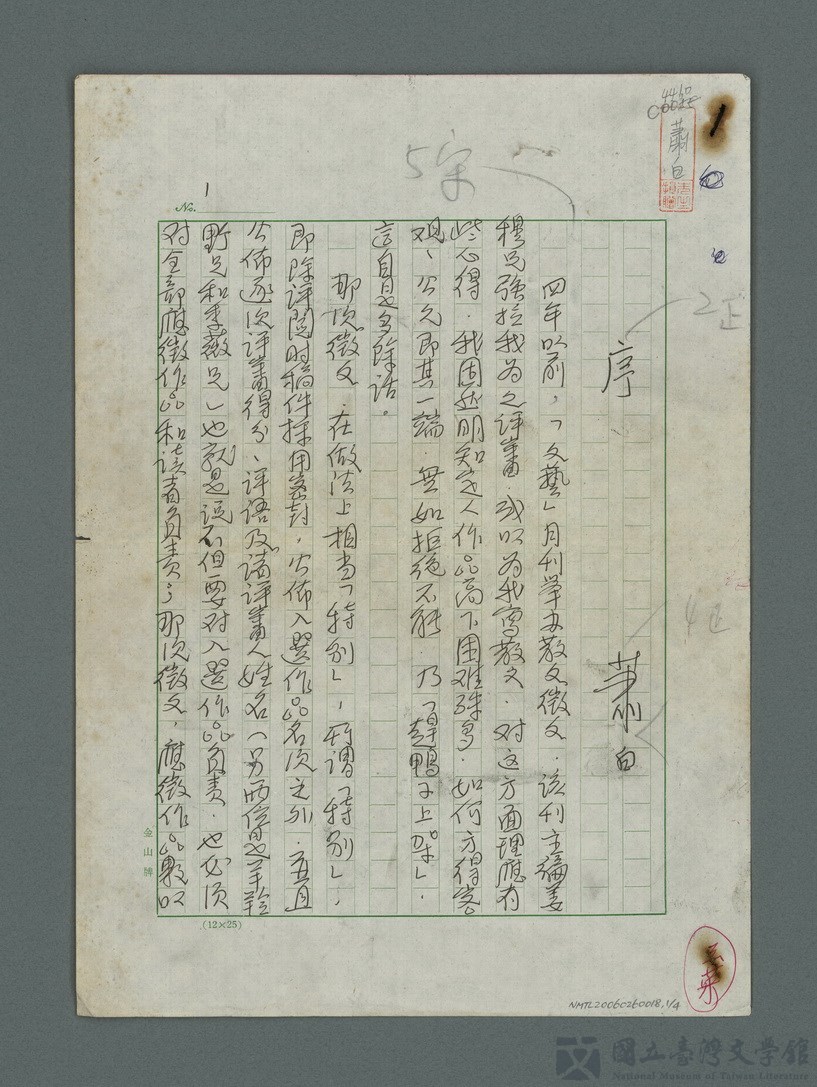 序
蕭白
四年以前，「文藝」月刊举办散文徵文．該刊主編姜
穆兄強拉我为之評審．或以为我寫散文．对这方面理應有
些心得．我固然明知定人作品高下困难殊多．如何方得客
观、公允即其一端．無如拒絶不能．乃「趕鴨子上架」．
這自是多餘話。
那次徵文．在做法上相当「特別」，所謂「特別」，
即除評閱时稿件採用密封，公佈入選作品名次之外．並且
公佈逐次評審得分、評語及諸評審人姓名（另两位是羊令
野兄和季薇兄）也就是說不但要对入選作品負责．也必須
对全部應徵作品和读者負责；那次徵文，應徵作品数以
No. 1
金山牌
(12×25)
5宋
2正
4正
蕭白
1
NMTL20060260018,1/4
國立臺灣文學館
National Museum of Taiwan Literature